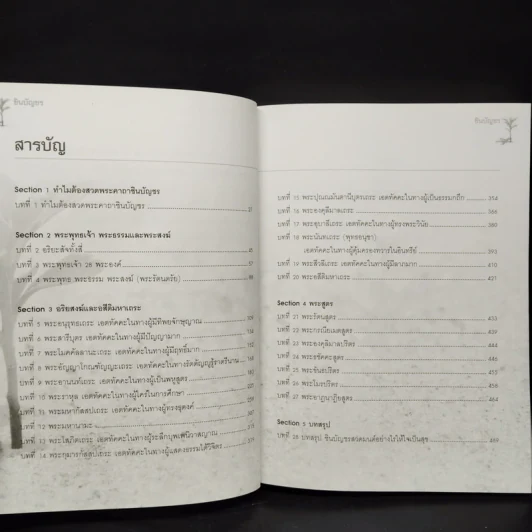 ชินบัญชร
สารบัญ
Section 1 ทำไมต้องสวดพระคาถาชินบัญชร
บทที่ 1 ทำไมต้องสวดพระคาถาชินบัญชร
Section 2 พระพุทธเจ้า พระธรรมและพระสงฆ์
บทที่ 2 อริยะสัจทั้งสี่
บทที่ 3 พระพุทธเจ้า 28 พระองค์
บทที่ 4 พระพุทธ พระธรรม พระสงฆ์ (พระรัตนตรัย)
Section 3 อริยสงฆ์และอสีติมหาเถระ
บทที่ 5 พระอนุรุทธเถระ เอตทัคคะในทางผู้มีทิพยจักษุญาณ
บทที่ 6 พระสารีบุตร เอตทัคคะในทางผู้มีปัญญามาก
บทที่ 7 พระโมคคัลลานะเถระ เอตทัคคะในทางผู้มีฤทธิ์มาก
บทที่ 8 พระอัญญาโกณฑัญญะเถระ เอตทัคคะในทางรัตตัญญูรู้ราตรีนาน
บทที่ 9 พระอานนท์เถระ เอตทัคคะในทางผู้เป็นพหูสูตร
บทที่ 10 พระราหุล เอตทัคคะในทางผู้ใคร่ในการศึกษา
บทที่ 11 พระมหากัสสปเถระ เอตทัคคะในทางผู้ทรงธุดงค์
บทที่ 12 พระมหานามะ
บทที่ 13 พระโสภิตเถระ เอตทัคคะในทางผู้ระลึกบุพเพนิวาสญาณ
บทที่ 14 พระกุมารกัสสปเถระ เอตทัคคะในทางผู้แสดงธรรมได้วิจิตร
ชินบัญชร
บทที่ 15 พระปุณณมันตานีบุตรเถระ เอตทัคคะในทางผู้เป็นธรรมกถึก 354
บทที่ 16 พระองคุลีมาลเถระ 366
บทที่ 17 พระอุบาลีเถระ เอตทัคคะในทางผู้ทรงพระวินัย 380
บทที่ 18 พระนันทเถระ (พุทธอนุชา)
เอตทัคคะในทางผู้คุ้มครองทวารในอินทรีย์ 393
บทที่ 19 พระสีวลีเถระ เอตทัคคะในทางผู้มีลาภมาก 410
บทที่ 20 พระอสีติมหาเถระ 421
Section 4 พระสูตร
บทที่ 21 พระรัตนสูตร 433
บทที่ 22 พระกรณียเมตสูตร
บทที่ 23 พระองคุลิมาลปริตร
บทที่ 24 พระธชัคคะสูตร
บทที่ 25 พระขันธปริตร
บทที่ 26 พระโมรปริตร
บทที่ 27 พระอาฏานาฏิยสูตร 464
Section 5 บทสรุป
บทที่ 28 บทสรุป ชินบัญชรสวดมนต์อย่างไรให้ใจเป็นสุข